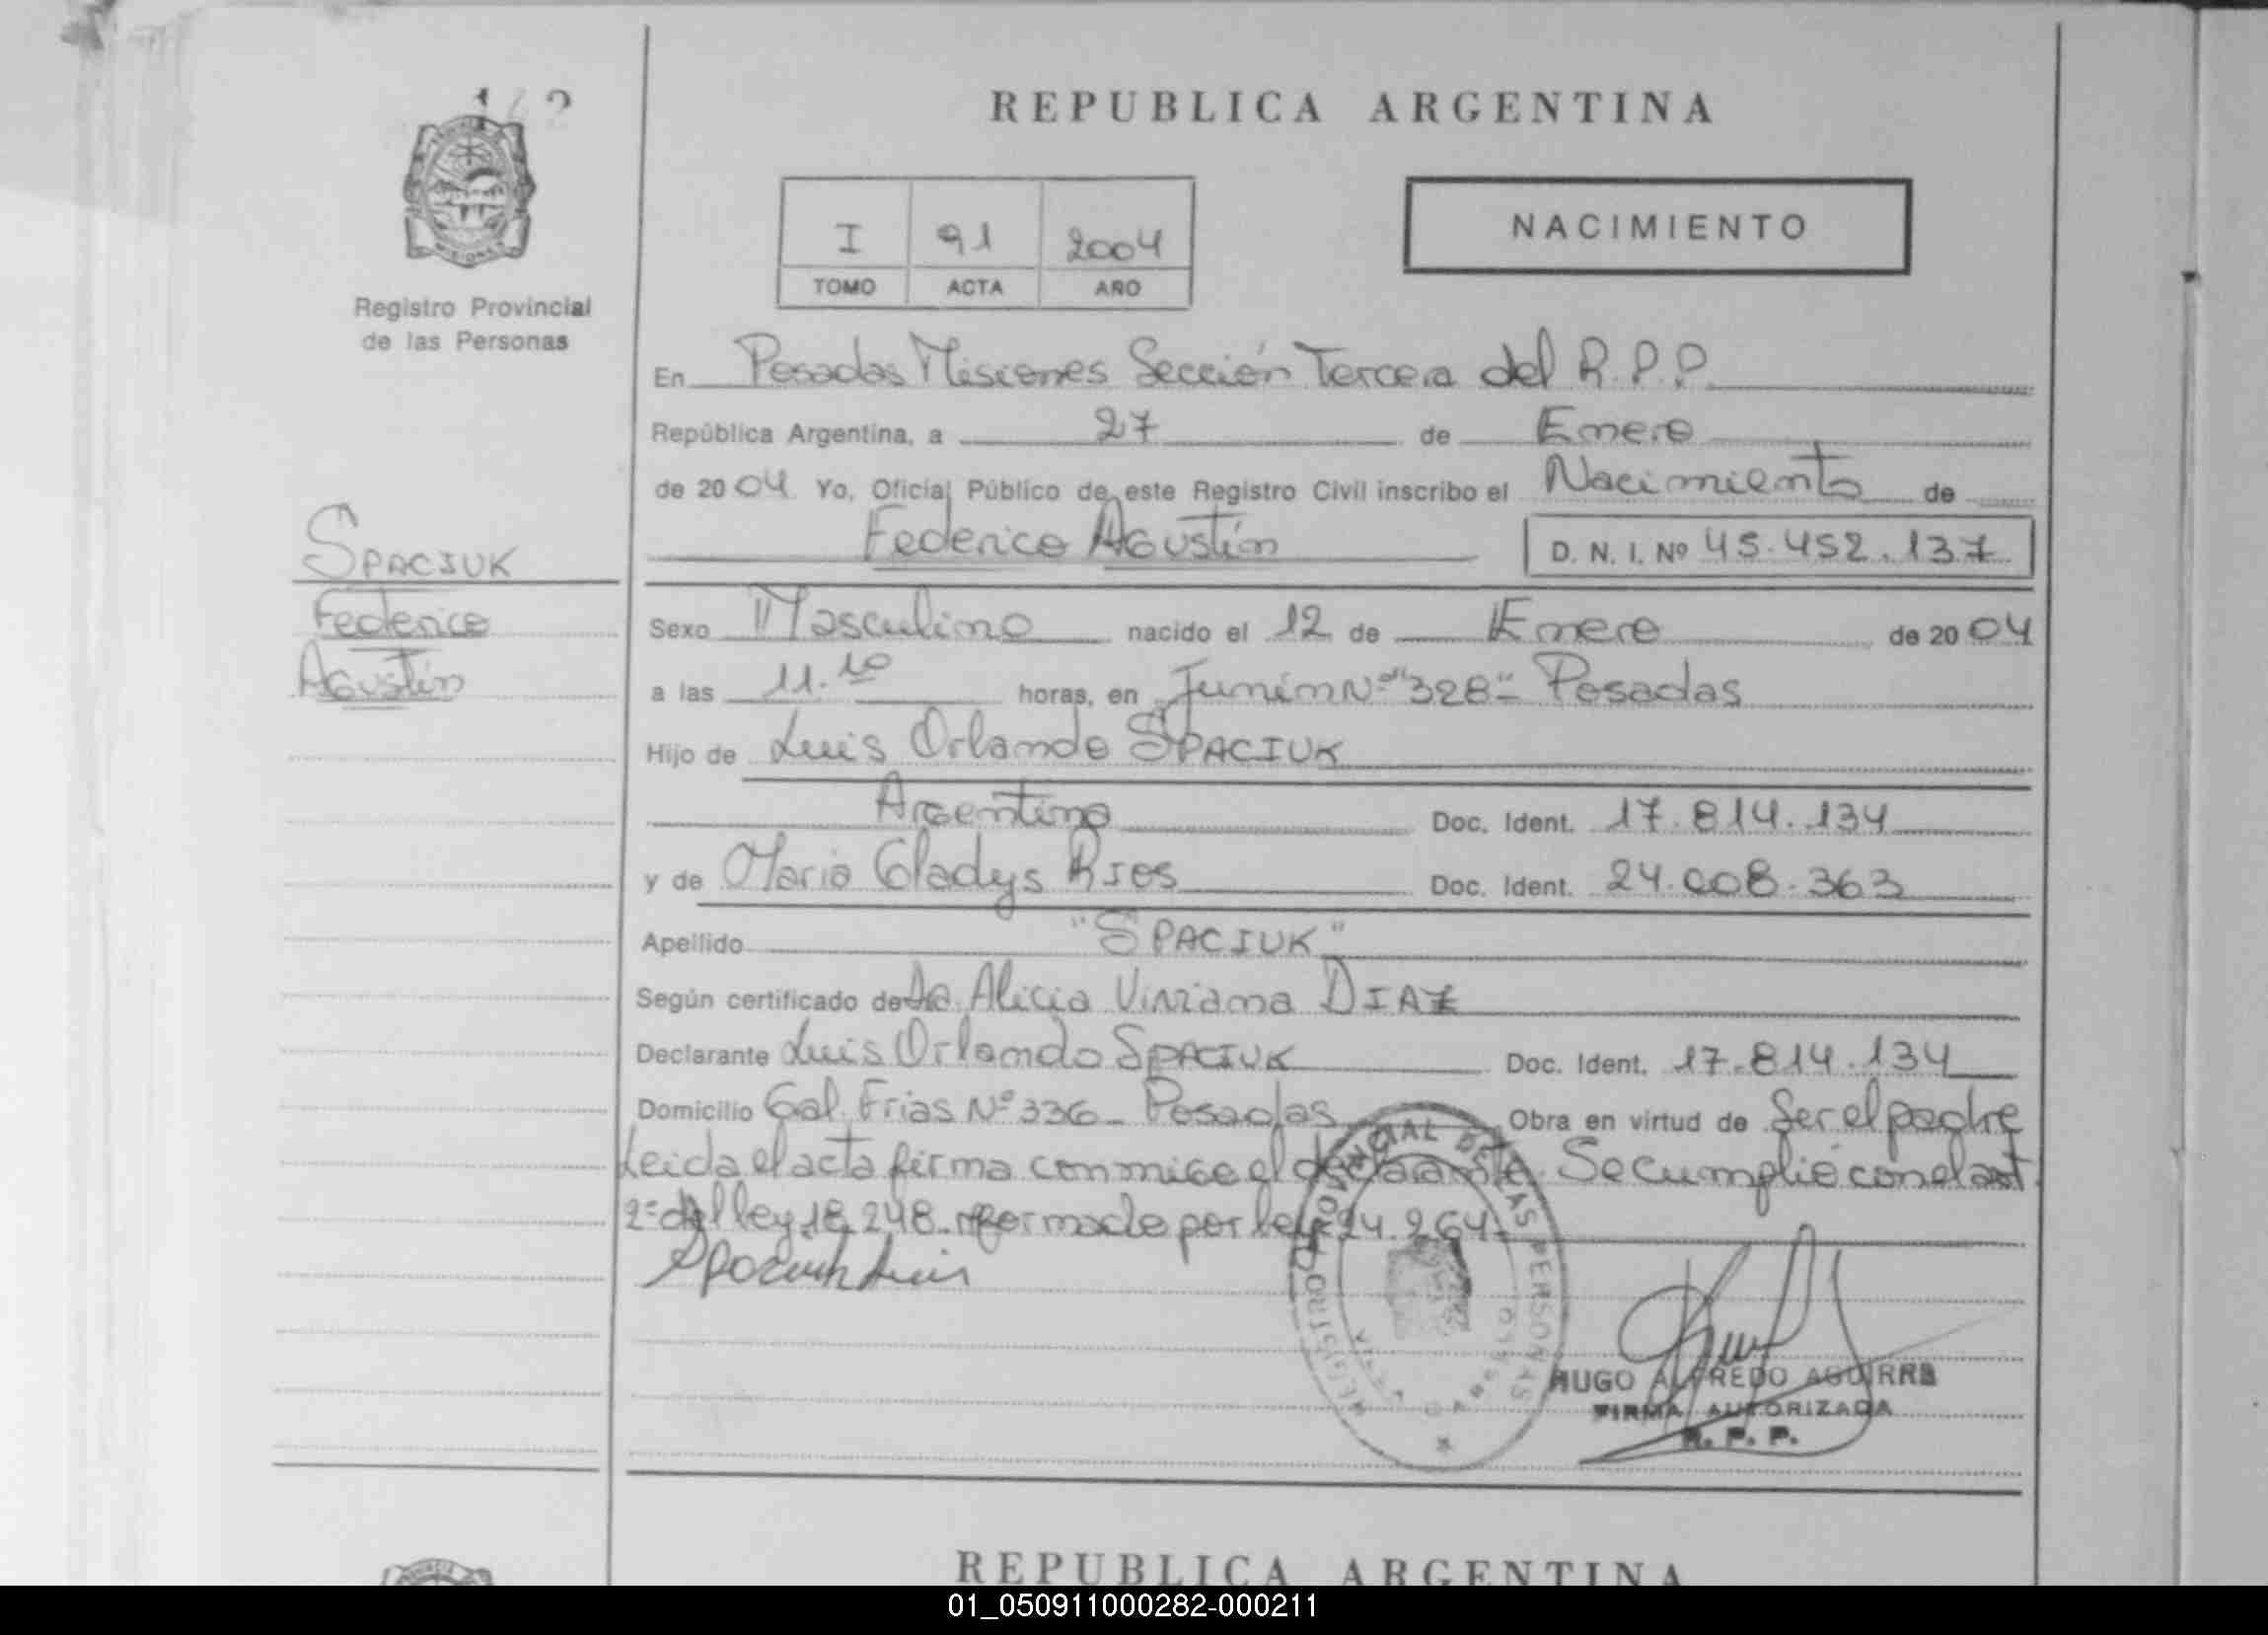 REPUBLICA ARGENTINA
Registro Provincial
de las Personas
I 91 2004
TOMO ACTA AÑO
NACIMIENTO
En Posadas Misiones Sección Tercera del R.P.P.
República Argentina, a 27 de Enero
de 2004 Yo, Oficial Público de este Registro Civil inscribo el Nacimiento de
Federico Agustín D. N. I. Nº 45.452.137
SPACIUK
Federico
Agustín
Sexo Masculino nacido el 12 de Enero de 2004
a las 11.10 horas, en Junín Nº "328" Posadas
Hijo de Luis Orlando SPACIUK
Argentino Doc. Ident. 17.814.134
y de Maria Gladys RIOS Doc. Ident. 24.008.363
Apellido "SPACIUK"
Según certificado de Dra. Alicia Viviana DIAZ
Declarante Luis Orlando SPACIUK Doc. Ident. 17.814.134
Domicilio Gal. Frias Nº 336 - Posadas Obra en virtud de Ser el padre
Leida el acta firma conmigo el declarante. Se cumplió con el art.
2º del ley 18.248 reformado por ley 24.264
Spaciuk Luis
REGISTRO PROVINCIAL DE LAS PERSONAS
HUGO ALFREDO AGUIRRE
FIRMA AUTORIZADA
R. P. P.
REPUBLICA ARGENTINA
01_050911000282-000211